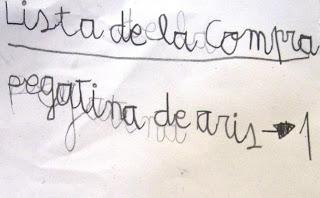 Lista de la Compra
pegatina de aris → 1